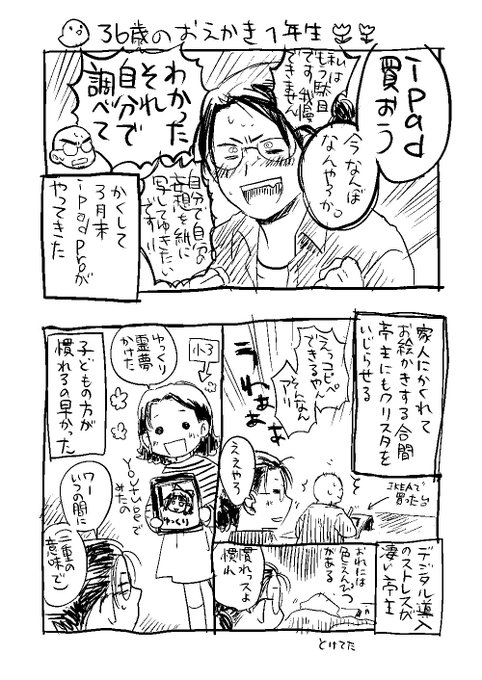 36歳のおえかき1年生
ipad
買おう
今なんぼ
なんやろか。
私は
もう駄目
です我慢
できません
わかった
それ
自分で
調べて
自分で自分の
妄想を紙に
写してゆきたい
です!!
かくして
3月末
ipad proが
やってきた
家人にかくれて
お絵かきする合間
亭主にもクリスタを
いじらせる
えっコピペ
できるやん
そんなん
アリ!
うわぁぁぁ
ええやろ
IKEAで
買った台
デジタル導入
のストレスが
凄い亭主
おれには
色えんぴつ
がある
慣れっスよ
慣れ
とけてた
小3
ゆっくり
霊夢
かけた
YouTubeで
みたの
ゆっくり
子どもの方が
慣れるの早かった
ワー
いつの間に
二重の
意味で